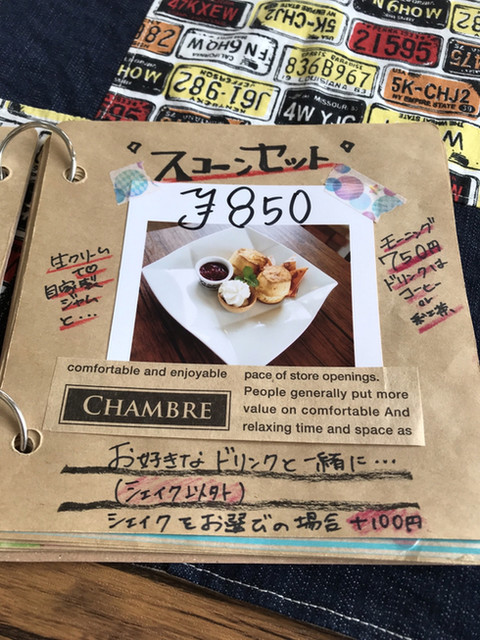 47KEXW
5K-CHJ2
282
N6HOW
FN6HOW
21595
6HOW
836B967
LOUISIANA 63
5K-CHJ2
NY EMPIRE STATE
J61-982
MISSOURI
4W YJC
スコーンセット
¥850
生クリーム
自家製
ジャム
と…
モーニング
750円
ドリンクは
コーヒー
or
紅茶
comfortable and enjoyable pace of store openings.
CHAMBRE
People generally put more
value on comfortable And
relaxing time and space as
お好きなドリンクと一緒に…
(シェイク以外)
シェイクをお選びの場合 +100円